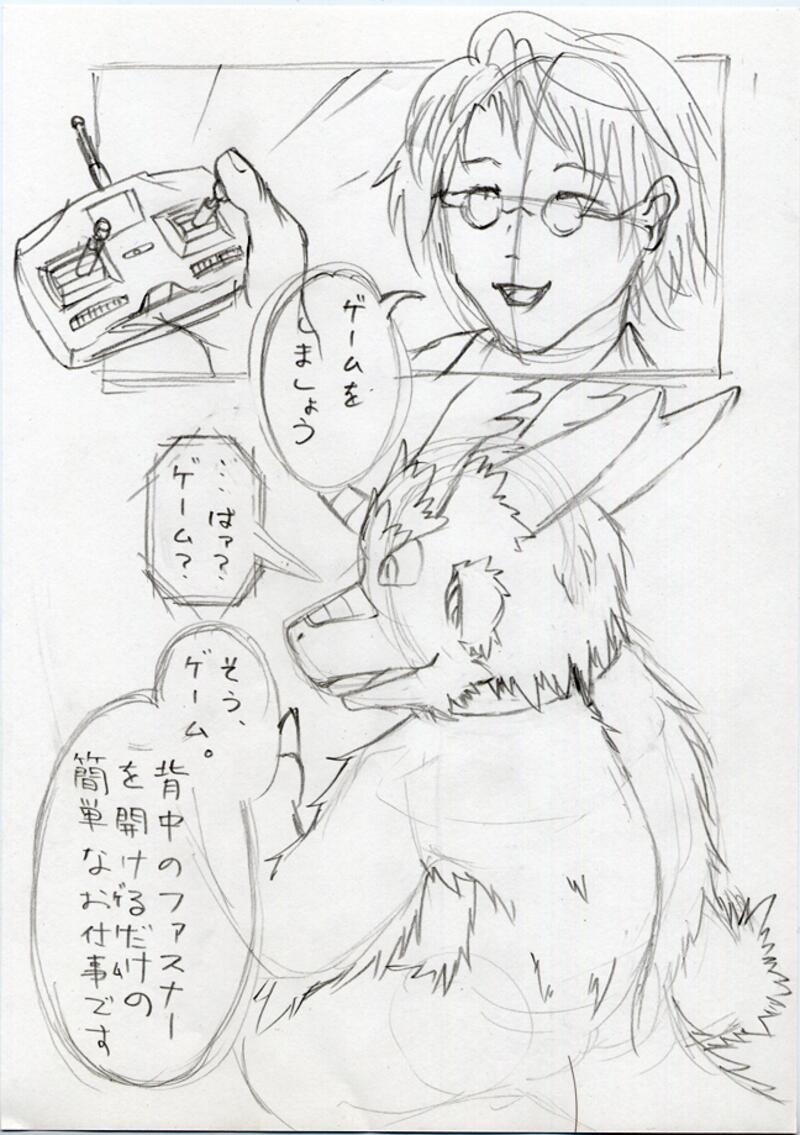 ゲームを
ましょう
…ばァ?
ゲーム?
そう、
ゲーム。
背中のファスナー
を開けるだけの
ゲーム
簡単なお仕事です